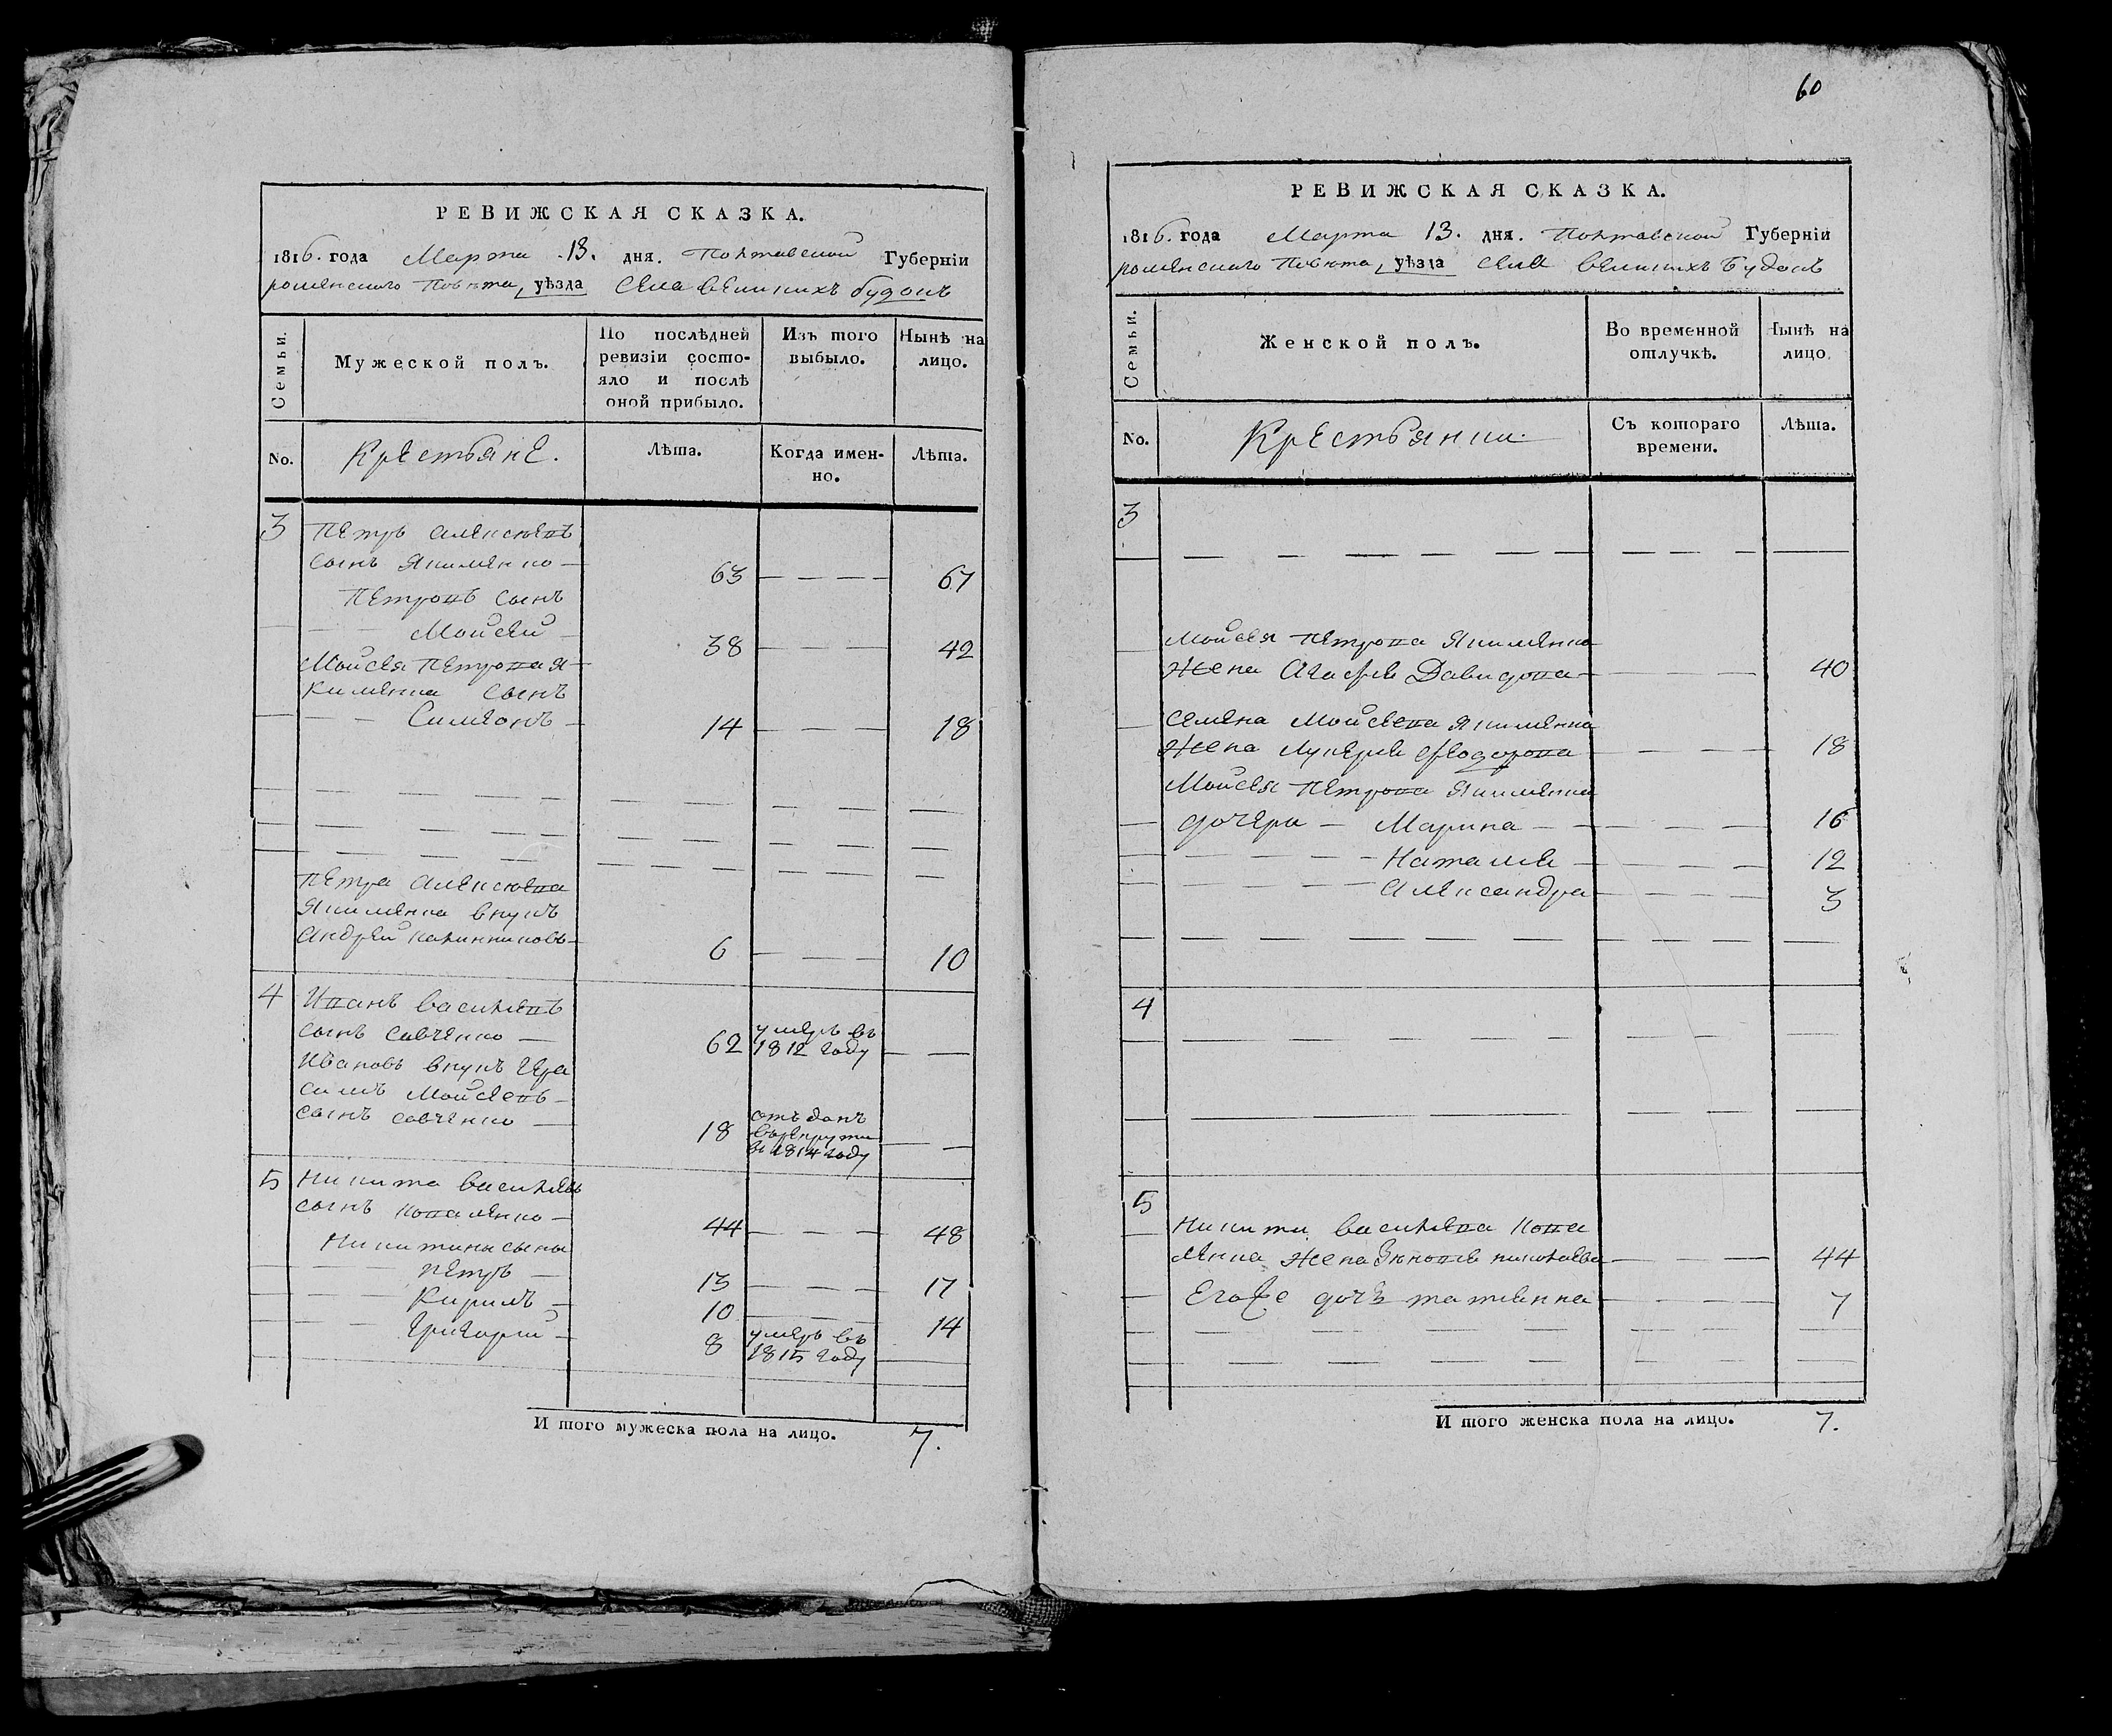 РЕВИЖСКАЯ СКАЗКА.
1816. года Марта 13. дня. Полтавской Губерніи
роменского повѣта, уѣзда Села великихъ будокъ
Семьи.
Мужеской полъ.
По послѣдней
ревизіи состо-
яло и послѣ
оной прибыло.
Изъ того
выбыло.
Нынѣ на
лицо.
No.
Крестьяне.
Лѣта.
Когда имен-
но.
Лѣта.
3 Петръ алексѣевъ
сынъ Якименко — 63 — — — 67
Петровъ сынъ
— — Мойсей — 38 — — — 42
Мойсея Петрова я-
кименка сынъ
— — — Симеонъ — 14 — — — 18
Петра алексѣева
Якименка внукъ
андрей калинниковъ — 6 — — — 10
4 Иванъ васильевъ
сынъ савченко — 62 умеръ въ
1812 году — —
Ивановъ внукъ Гера
симъ Мойсеевъ —
сынъ савченко — 18 отъ данъ
въ рекруты
в 1814 году — —
5 Никита васильевъ
сынъ коваленко — 44 — — — 48
Никитины сыны
— — — Петръ — 13 — — — 17
— — Кирилъ — 10 — — — 14
— — Григорій — 8 умеръ въ
1815 году
И того мужеска пола на лицо. 7.
60
РЕВИЖСКАЯ СКАЗКА.
1816. года Марта 13. дня. Полтавской Губерніи
роменского Повѣта, уѣзда села великихъ Будокъ
Семьи.
Женской полъ.
Во временной
отлучкѣ.
Нынѣ на
лицо.
No.
Крестьянки.
Съ котораго
времени.
Лѣта.
3
Мойсея Петрова Якименка
жена Агафія Давидова — — — — 40
семена Мойсеева Якименка
жена лукерія Феодорова — — — — 18
Мойсея Петрова Якименка
дочери — Марина — — — — 16
— — — — Наталія — — — — 12
— — — — александра — — — 3
4
5
Никиты васильева кова
ленка жена николаева — — — 44
Его же дочь татіянна — — — 7
И того женска пола на лицо. 7.